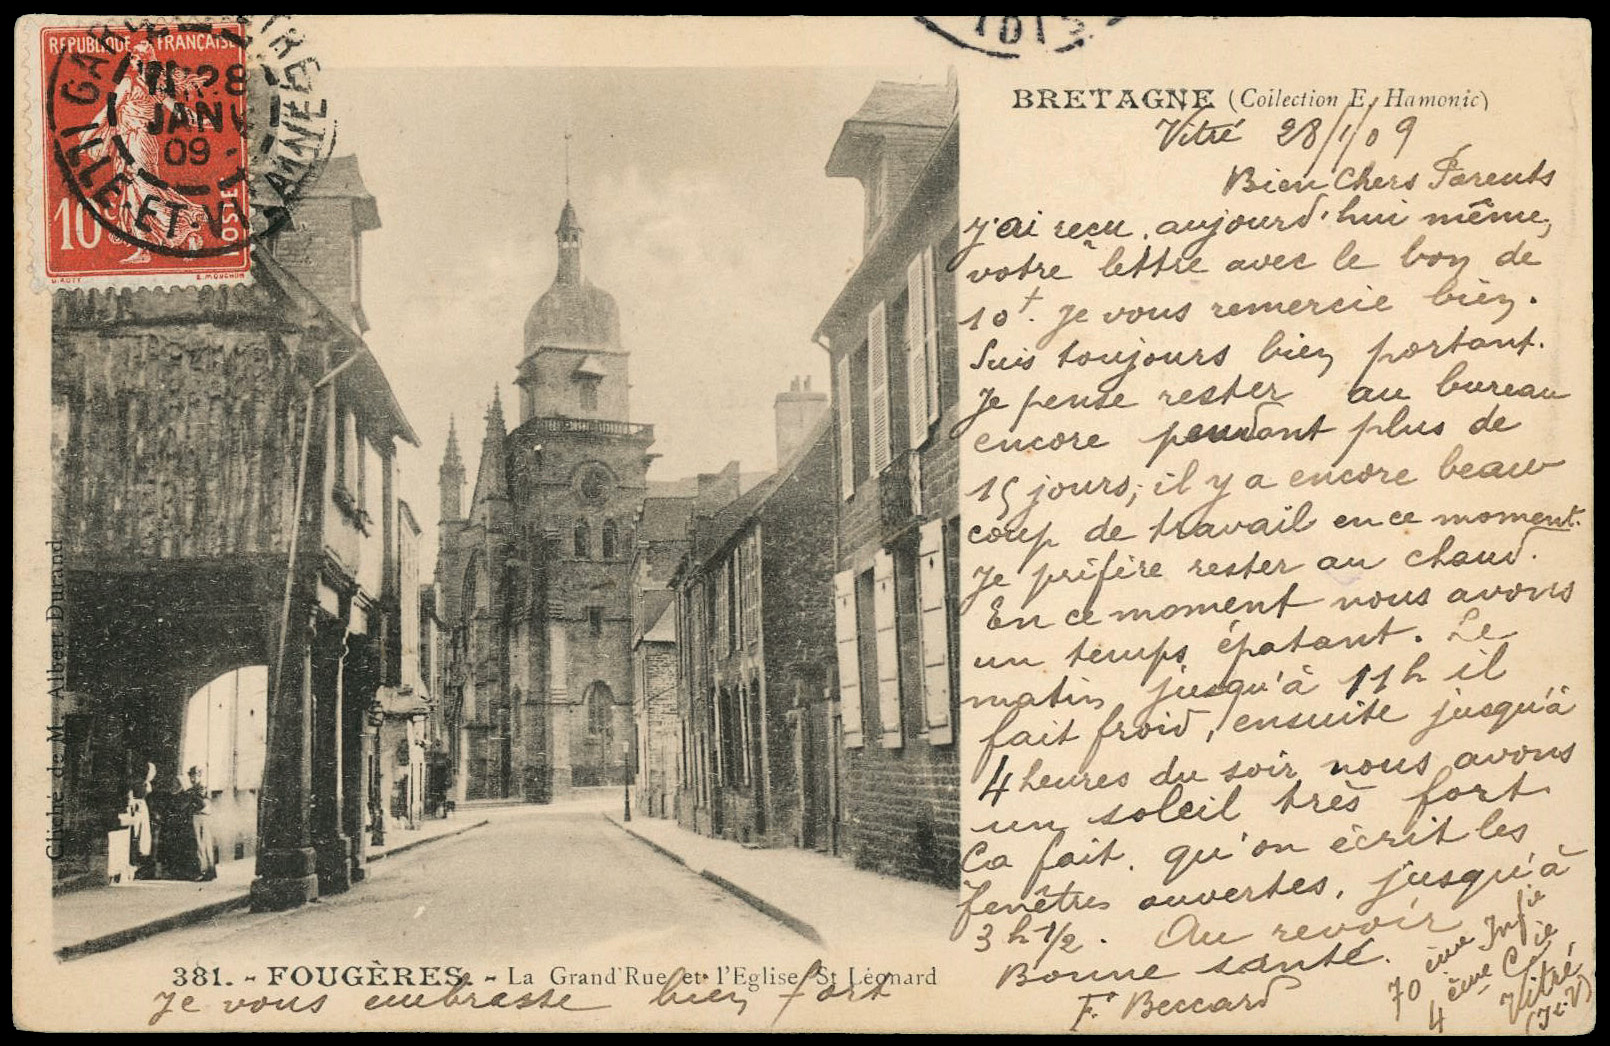 REPUBLIQUE FRANÇAISE
10c
POSTES
O. ROTY
E. MOUCHON
GARE VITRE
28
JANV
09
ILLE-ET-V
BRETAGNE (Collection E. Hamonic)
Vitré 28/1/09
Bien Chers Parents
j'ai reçu aujourd'hui même,
votre lettre avec le bon de
10f. Je vous remercie bien.
Suis toujours bien portant.
Je pense rester au bureau
encore pendant plus de
15 jours; il y a encore beau
coup de travail en ce moment.
Je préfère rester au chaud.
En ce moment nous avons
un temps épatant. Le
matin jusqu'à 11h il
fait froid, ensuite jusqu'à
4 heures du soir nous avons
un soleil très fort
Ca fait qu'on écrit les
fenêtres ouvertes, jusqu'à
3 h 1/2. Au revoir
Bonne santé.
F. Beccard
70 ème Infie
4 ème Cie
Vitré
(I.-V)
Cliché de M. Albert Durand
381. - FOUGÈRES. - La Grand'Rue et l'Eglise St Léonard
Je vous embrasse bien fort